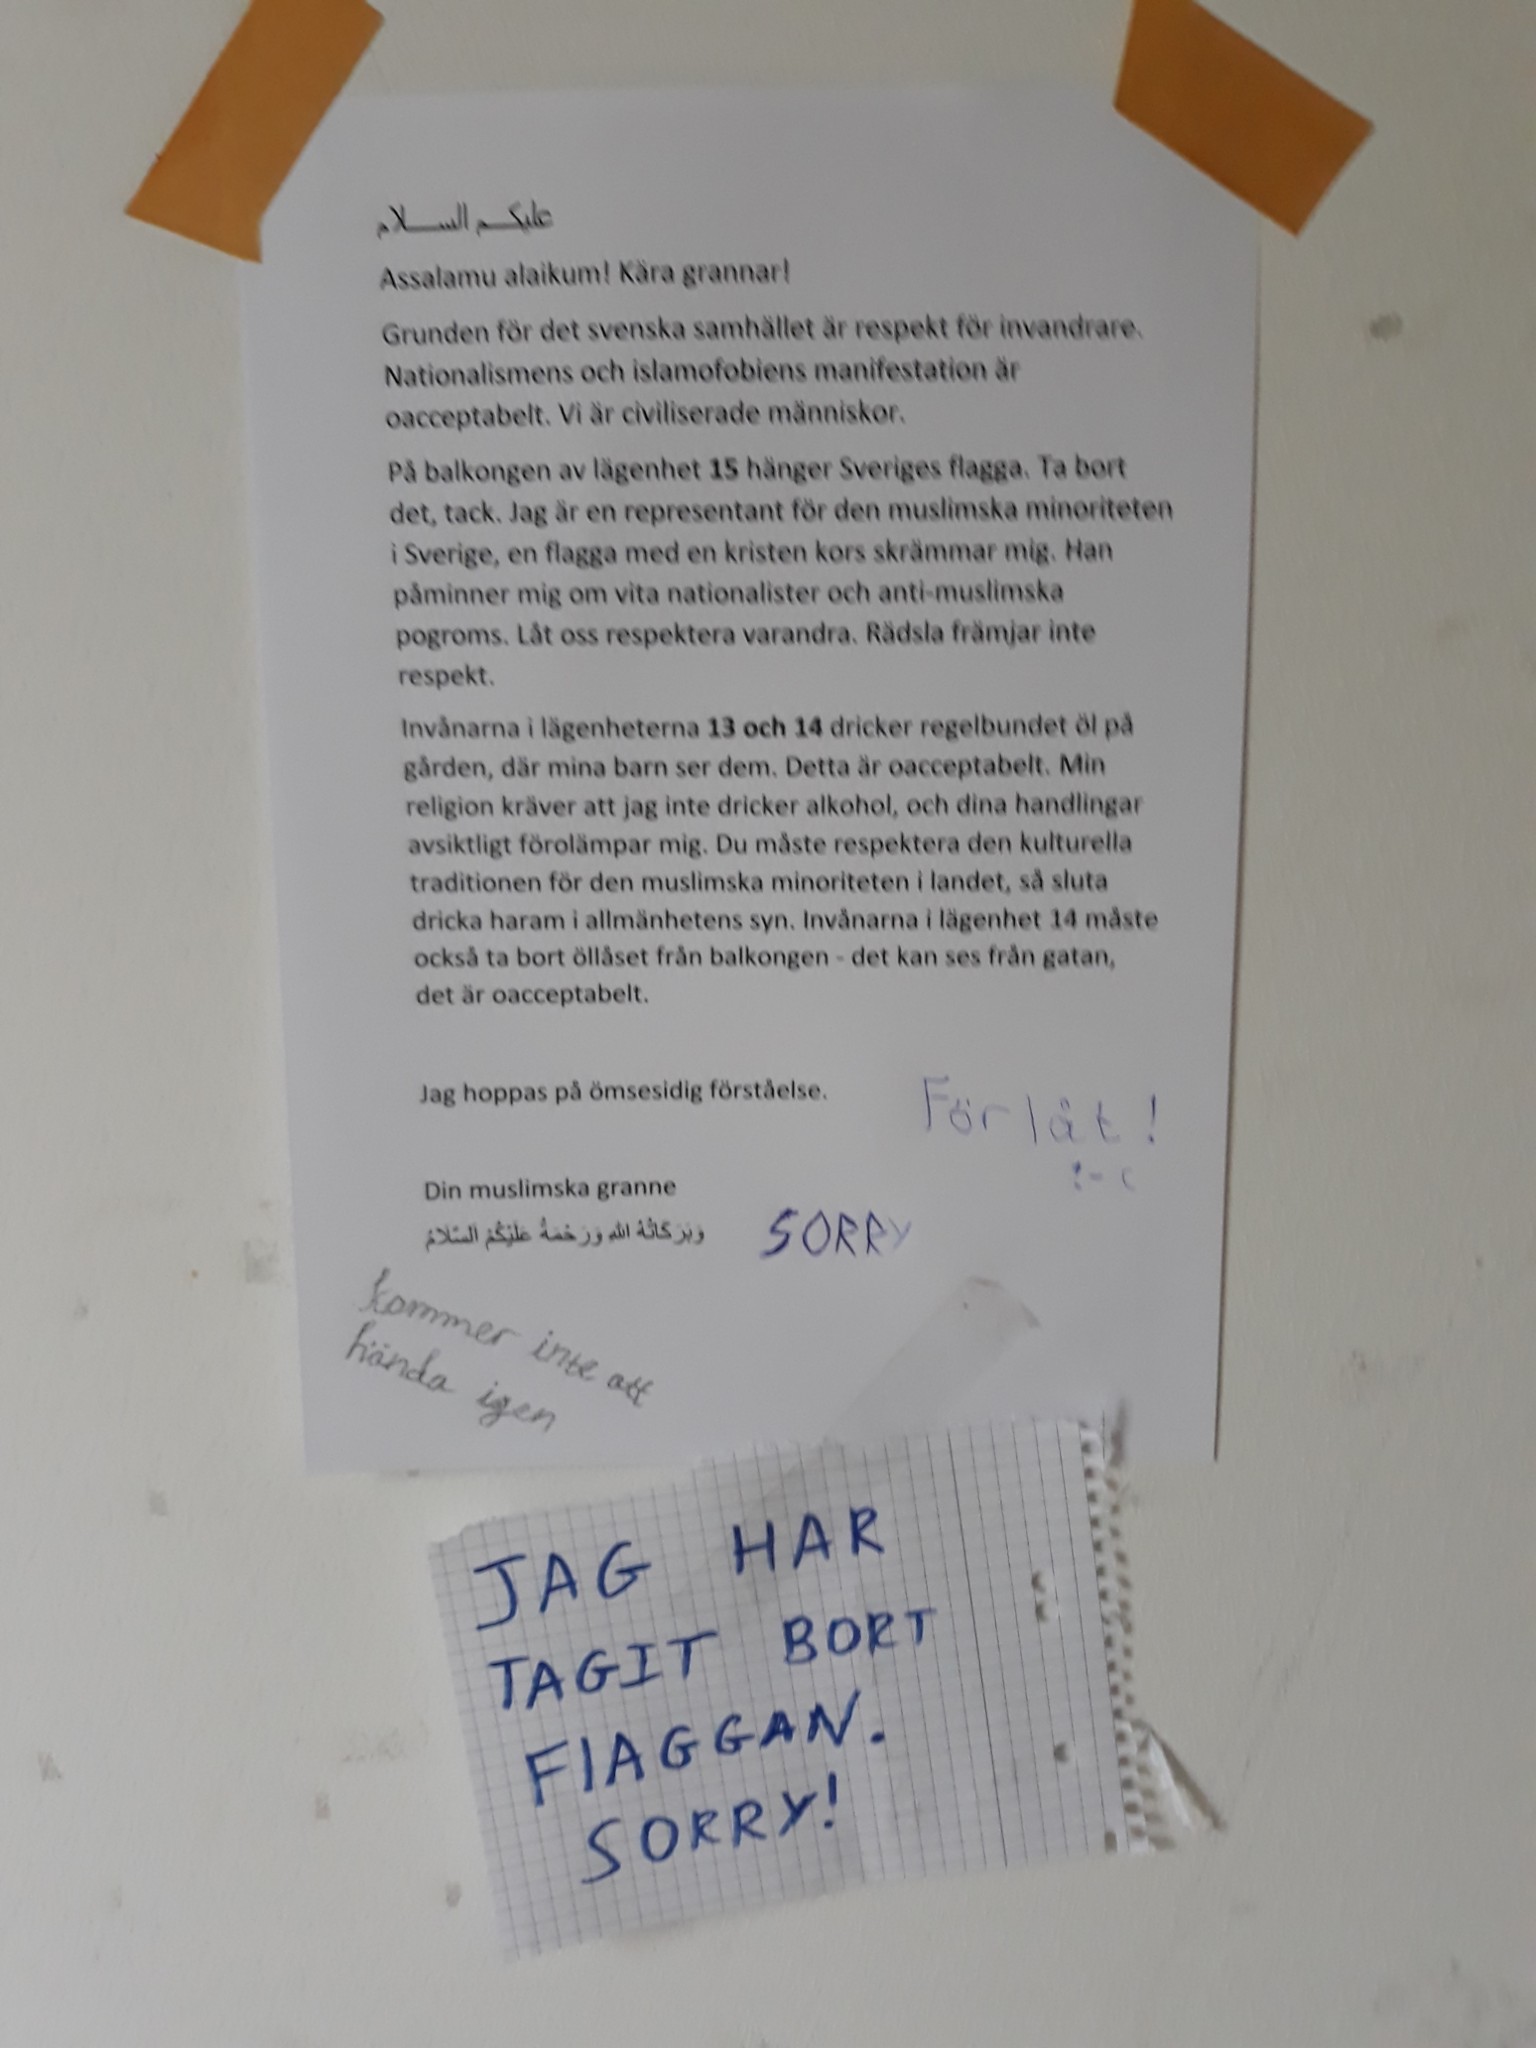 عليكم السلام
Assalamu alaikum! Kära grannar!
Grunden för det svenska samhället är respekt för invandrare.
Nationalismens och islamofobiens manifestation är
oacceptabelt. Vi är civiliserade människor.
På balkongen av lägenhet 15 hänger Sveriges flagga. Ta bort
det, tack. Jag är en representant för den muslimska minoriteten
i Sverige, en flagga med en kristen kors skrämmar mig. Han
påminner mig om vita nationalister och anti-muslimska
pogroms. Låt oss respektera varandra. Rädsla främjar inte
respekt.
Invånarna i lägenheterna 13 och 14 dricker regelbundet öl på
gården, där mina barn ser dem. Detta är oacceptabelt. Min
religion kräver att jag inte dricker alkohol, och dina handlingar
avsiktligt förolämpar mig. Du måste respektera den kulturella
traditionen för den muslimska minoriteten i landet, så sluta
dricka haram i allmänhetens syn. Invånarna i lägenhet 14 måste
också ta bort öllåset från balkongen - det kan ses från gatan,
det är oacceptabelt.
Jag hoppas på ömsesidig förståelse.
Förlåt!
:-(
Din muslimska granne
وَبَرَكَاتُهُ اللهِ وَرَحْمَةُ عَلَيْكُمْ اَلسَّلَامُ
SORRY
kommer inte att
hända igen
JAG HAR
TAGIT BORT
FlAGGAN.
SORRY!